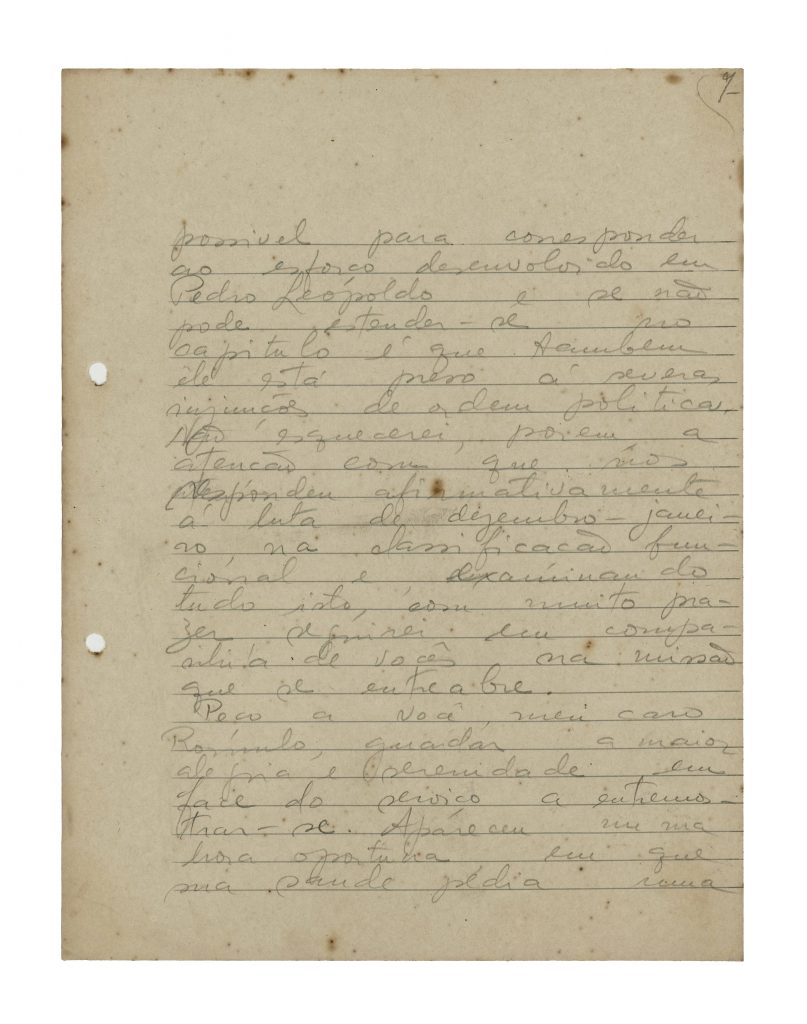 7-
possivel para corresponder
ao esforço desenvolvido em
Pedro Leopoldo e se não
pode estender-se no
capitulo é que tambem
ele está preso á severas
injunções de ordem politica.
Não esquecerei, porem a
atenção com que nos
respondeu afirmativamente
á luta de dezembro-janei-
ro, na classificacão fun-
cional e examinando
tudo isto, com muito pra-
zer seguirei em compa-
nhia de vocês na missão
que se entreabre.
Peço a você, meu caro
Romulo, guardar a maior
alegria e serenidade em
face do serviço a entremos-
trar-se. Apareceu numa
hora oportuna em que
sua saude pedia uma